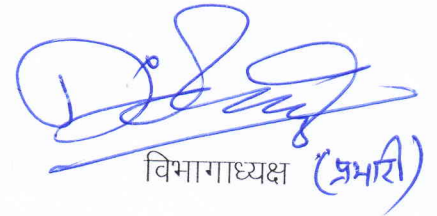 विभागाध्यक्ष (प्रभारी)